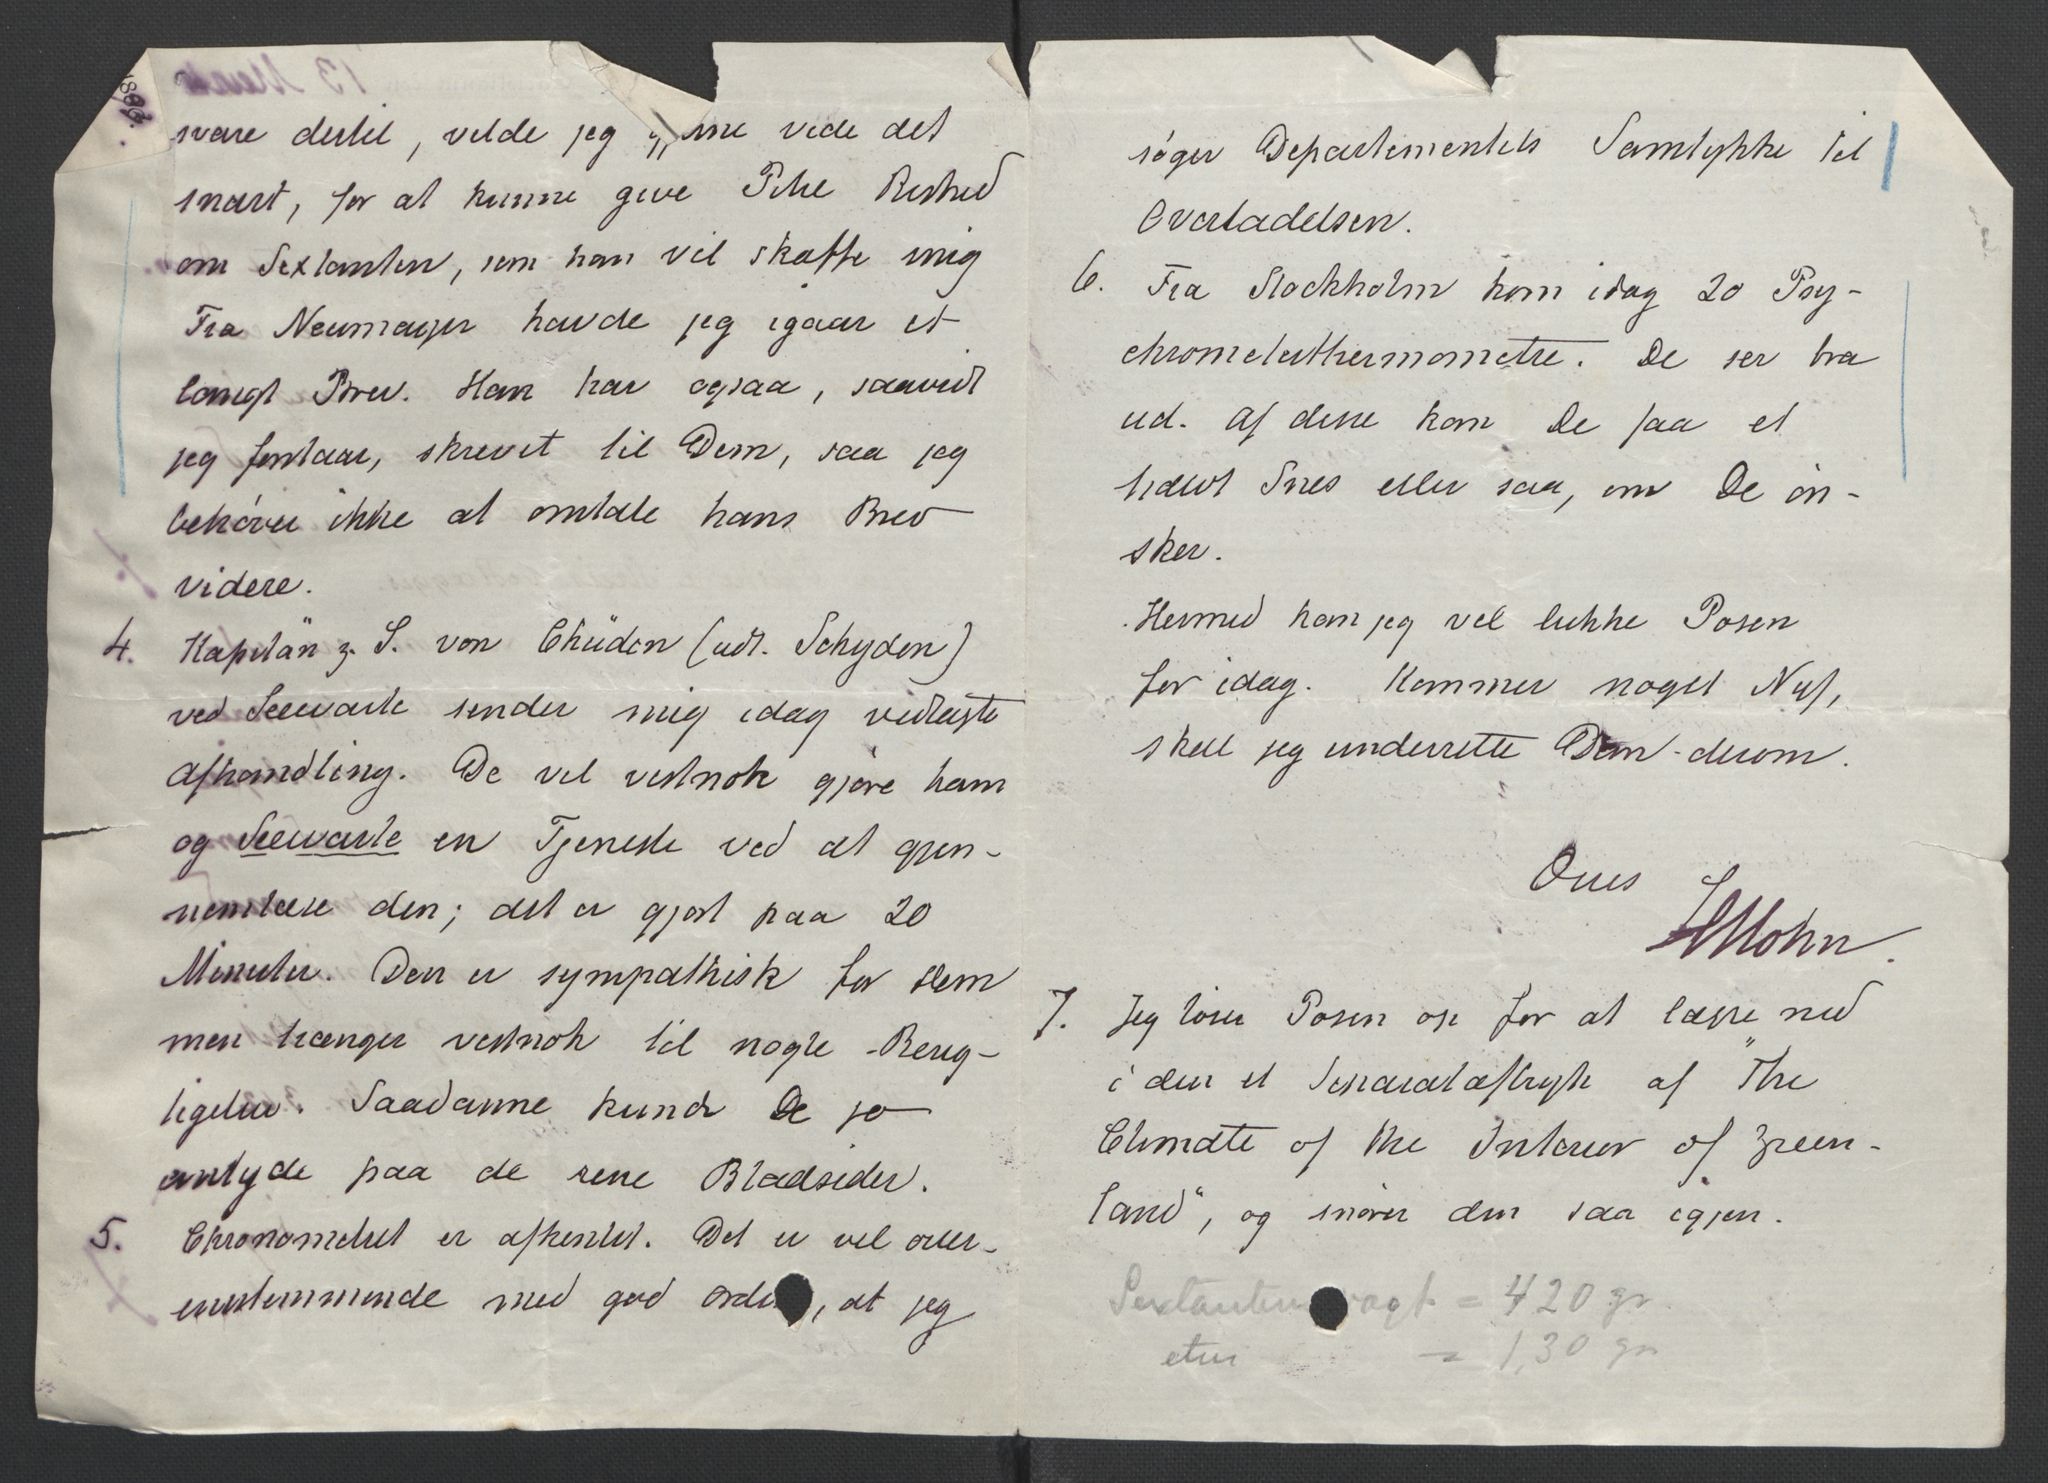 svare dertil, vilde jeg gjerne vide det
snart, for at kunne give Pihe Besked
om Sextanten, som han vil skaffe mig
Fra Neumayer havde jeg igaar et
langt Brev. Han har ogsaa, saavidt
jeg forstaar, skrevet til Dem, saa jeg
behøver ikke at omtale hans Brev
videre.
4. Kapitän z. S. von Chüden (udt. Schyden)
ved Seewarte sender mig idag vedlagte
Afhandling. De vil vistnok gjøre ham
og Seewarte en Tjeneste ved at gjen-
nemlæse den; det er gjort paa 20
Minuter. Den er sympathisk for Dem
men trænger vistnok til nogle Berig-
tigelser. Saadanne kunde De jo
antyde paa de rene Bladsider.
5. Chronometret er afhentet. Det er vel over-
ensstemmende med god Orden, at jeg
søger Departementets Samtykke til
Overladelsen.
6. Fra Stockholm kom idag 20 Psy-
chrometerthermometre. De ser bra
ud. Af disse kan De faa et
halvt Snes eller saa, om De øn-
sker.
Hermed kan jeg vel lukke Posen
for idag. Kommer noget Nyt,
skal jeg underrette Dem derom.
Deres
HMohn.
7. Jeg løser Posen op for at lægge ned
i den et Separataftryk af "The
Climate of the Interior of Green-
land", og snører den saa igjen.
Sextanten vægt = 420 gr
etui = 1,30 gr
1882.
13